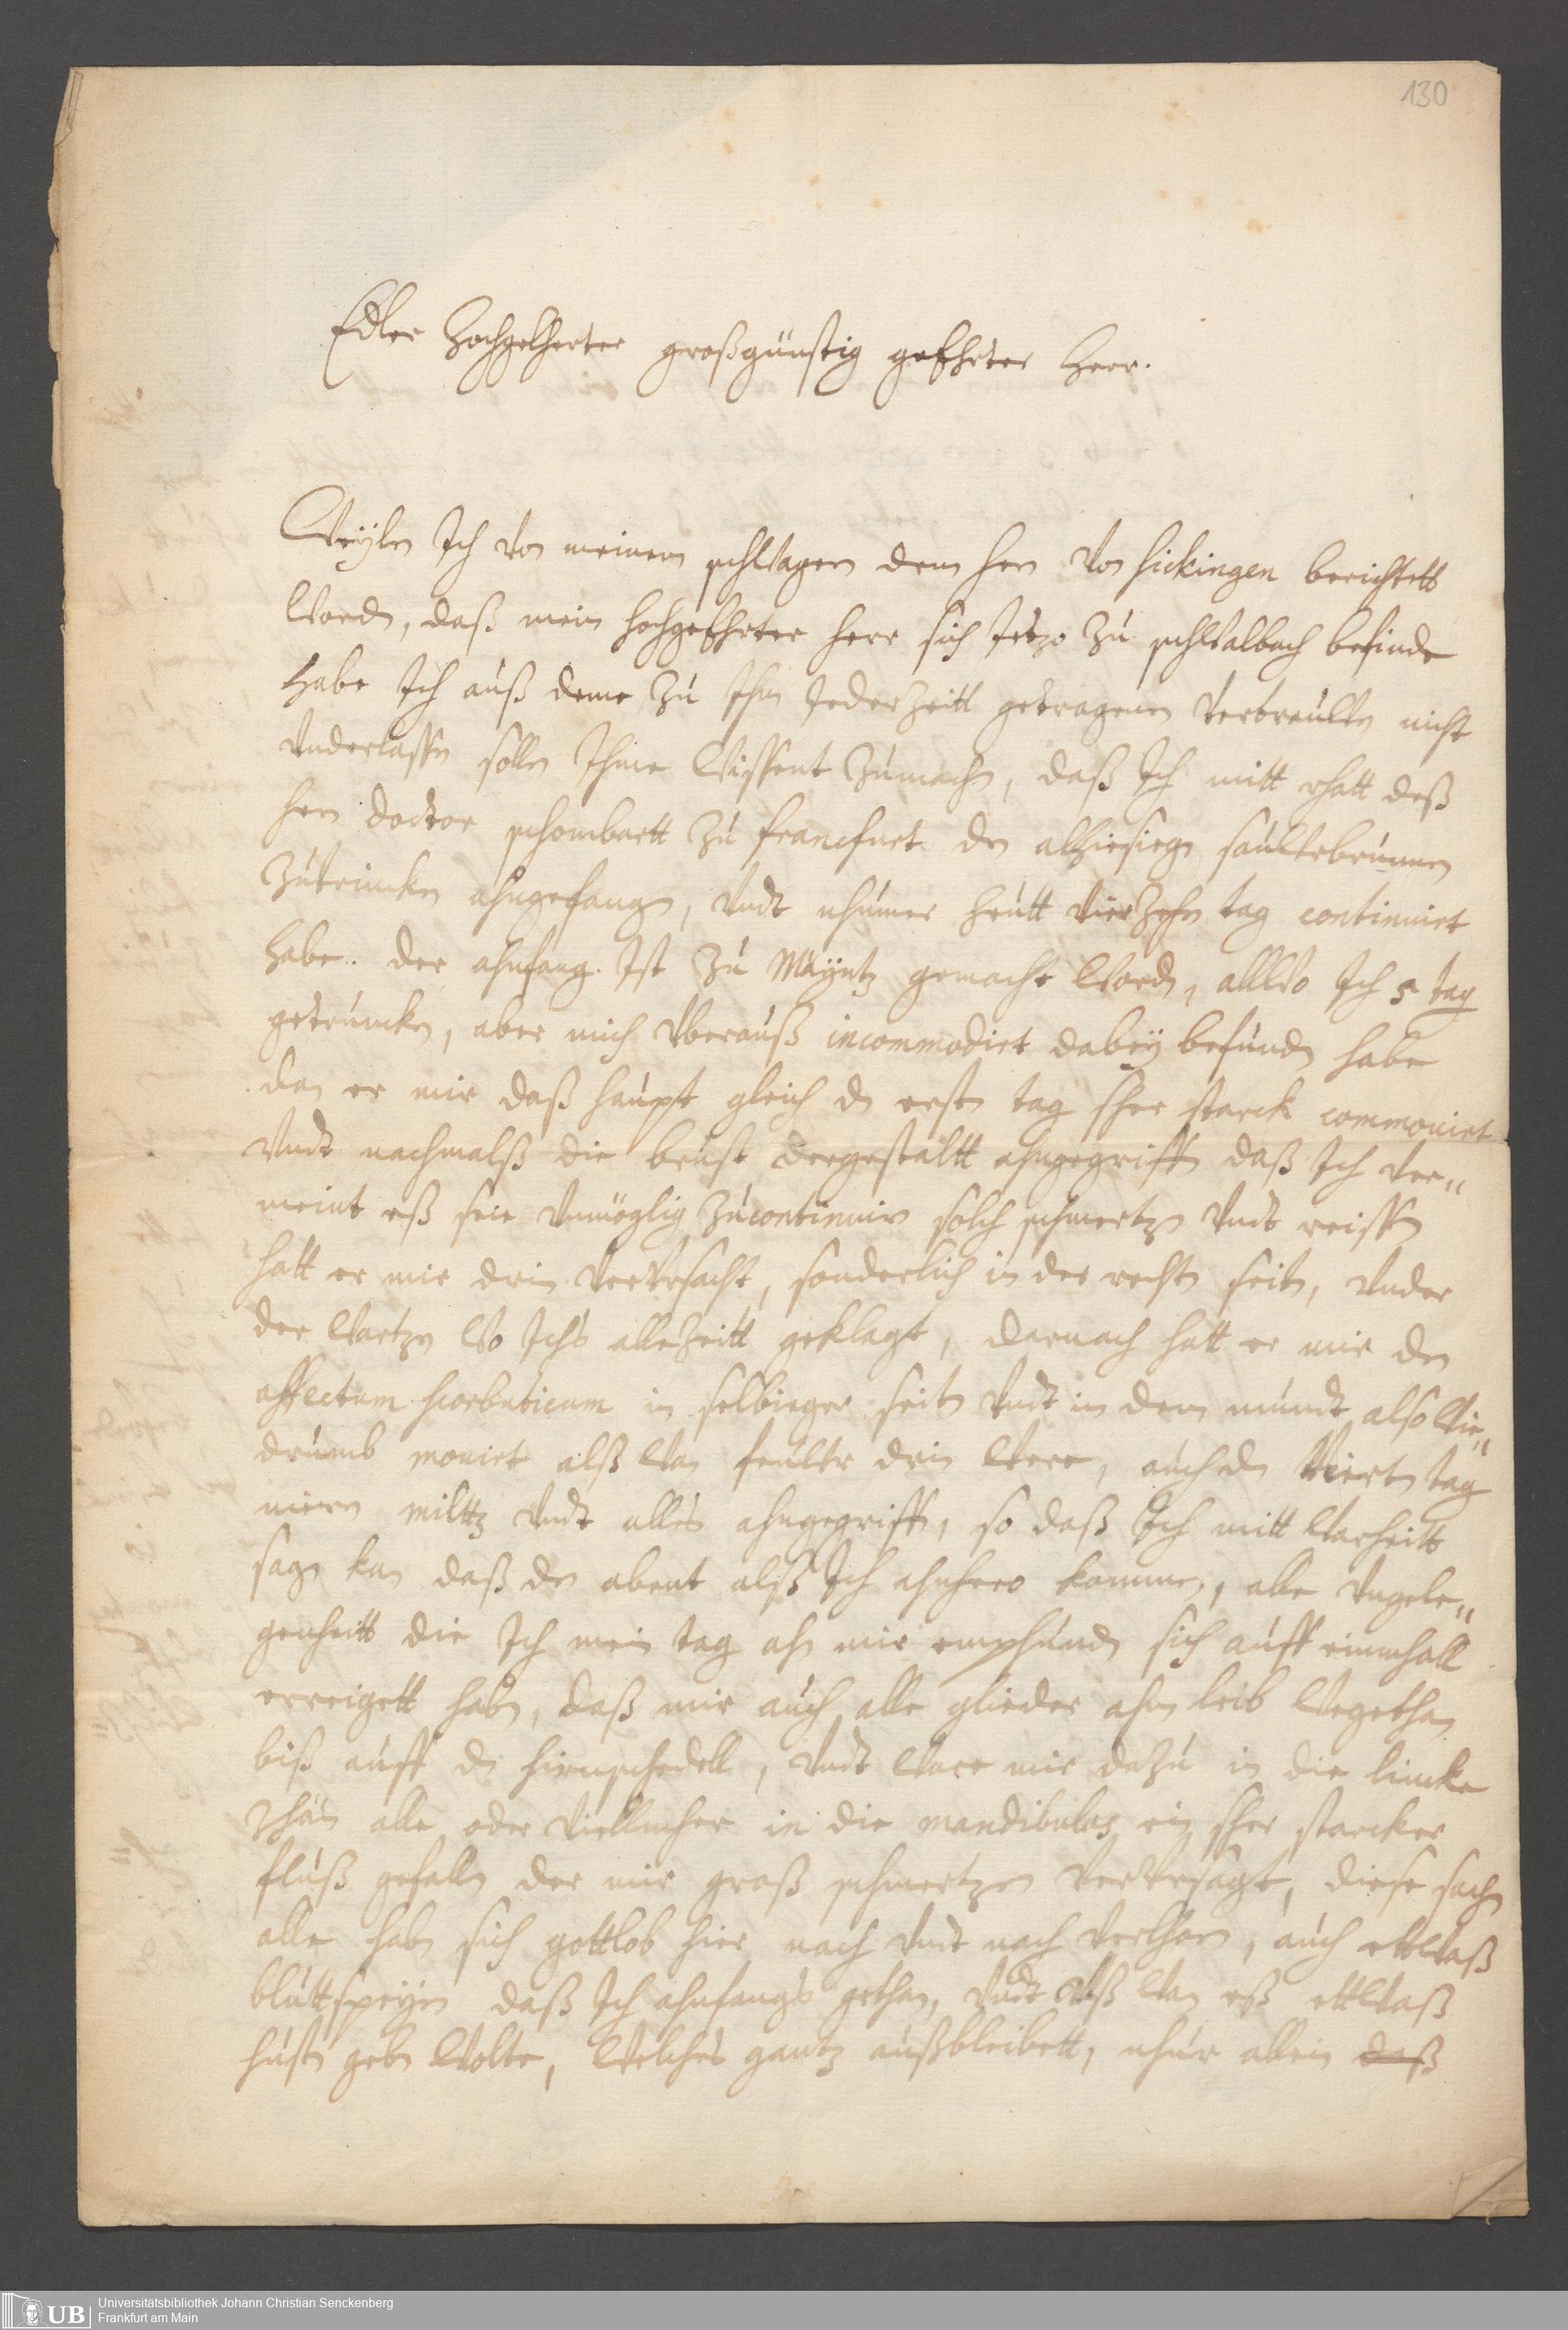 130
Edler Hochgelherter großgünstig geEhrter Herr.
Weÿlen Ich von meinem schwagern dem hern von Sickingen berichtett
worden, daß mein hochgeEhrter herr sich Jetzo zu schwalbach befinde
habe Ich auß deme zu Ihm Jederzeitt getragenen vertrauwen nicht
vnderlassen sollen Ihme wissent zumachen, daß Ich mitt rhatt deß
hern doctor schombartt zu francfurt den alhiesiegen sauwrbrunnen
zutrincken ahngefangen, vndt nhumer heutt vierzehn tag continuirt
habe. der ahnfang Ist zu Maÿntz gemacht worden, allwo Ich 5 tag
getruncken, aber mich vberauß incommodirt dabeÿ befunden habe
dan er mir daß haupt gleich den ersten tag sher starck commovirt
vndt nachmalß die brust dergestaltt ahngegriffen daß Ich ver„
meint eß seie vnmöglig zucontinuiren solch schmertzen vndt reissen
hatt er mir drin vervrsacht, sonderlich in der rechten seiten, vnder
der wartzen wo Ichs allezeitt geklagt, darnach hatt er mir den
affectum scorbuticum in selbieger seiten vndt in dem mundt also wie„
drumb movirt alß wan feuwr drin were, auch den vierten tag
nieren miltz vndt alles ahngegriffen, so daß Ich mitt warheitt
sagen kan daß den abent alß Ich ahnhero kommen, alle vngele„
genheitt die Ich mein tag ahn mir empfunden sich auff einmhall
erreigett haben, daß mir auch alle glieder ahm leib wegethan
biß auff den hirnschedell, vndt ware mir dazu in die lincke
zhän alle oder viellmher in die mandibulas ein sher starcker
fluß gefallen der mir groß schmertzen vervrsagt, diese sachen
alle haben sich gottlob hier nach vndt nach verlhoren, auch ettwaß
bluttspeÿen daß Ich ahnfangs gethan, vndt alß wan eß ettwaß
husten geben wolte, welches gantz außbleibett, nhur allein daß
UB Universitätsbibliothek Johann Christian Senckenberg
Frankfurt am Main